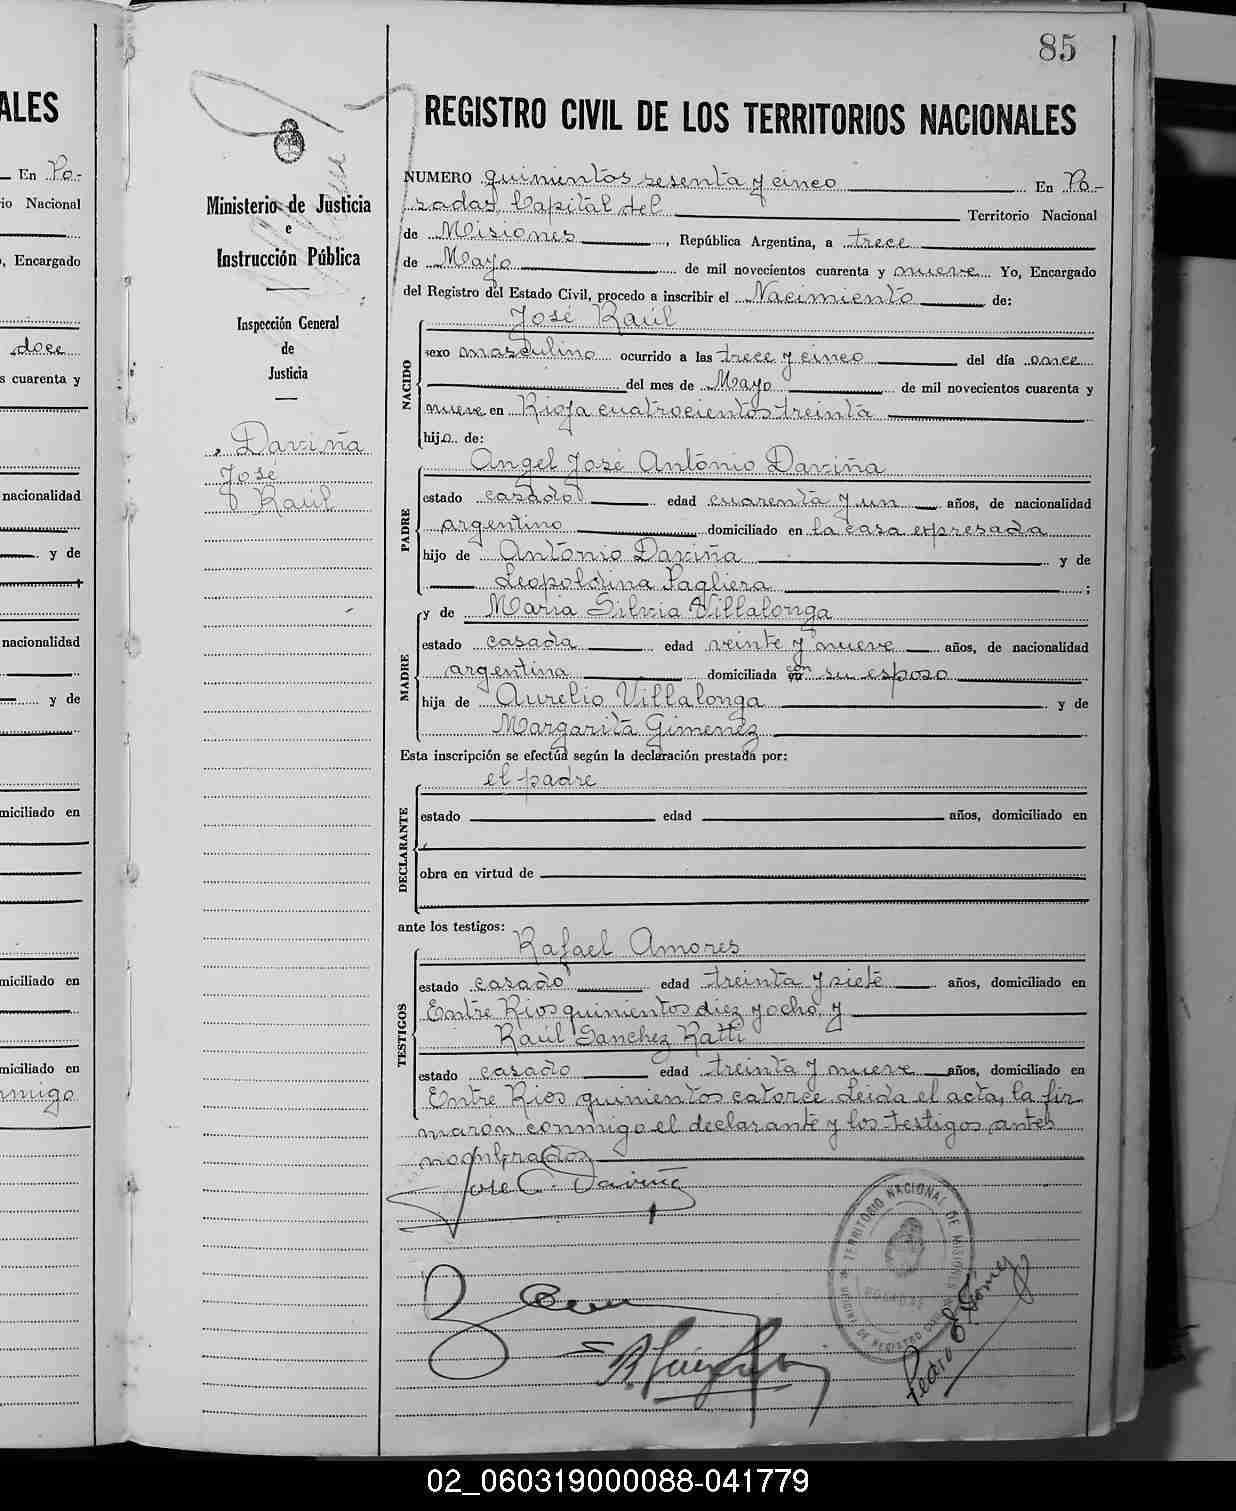 ALES
En Po-
io Nacional
o, Encargado
doce
s cuarenta y
nacionalidad
y de
nacionalidad
y de
miciliado en
miciliado en
miciliado en
nmigo
85
Ministerio de Justicia
e
Instrucción Pública
Inspección General
de
Justicia
Daviña
José
Raúl
REGISTRO CIVIL DE LOS TERRITORIOS NACIONALES
NUMERO quinientos sesenta y cinco En Po-
sadas Capital del Territorio Nacional
de Misiones, República Argentina, a trece
de Mayo de mil novecientos cuarenta y nueve Yo, Encargado
del Registro del Estado Civil, procedo a inscribir el Nacimiento de:
NACIDO
José Raúl
sexo masculino ocurrido a las trece y cinco del día once
del mes de Mayo de mil novecientos cuarenta y
nueve en Rioja cuatrocientos treinta
hijo de:
PADRE
Angel José Antonio Daviña
estado casado edad cuarenta y un años, de nacionalidad
argentino domiciliado en la casa expresada
hijo de Antonio Daviña y de
Leopoldina Pagliera ;
MADRE
y de María Silvia Villalonga
estado casada edad veinte y nueve años, de nacionalidad
argentina domiciliada con su esposo
hija de Aurelio Villalonga y de
Margarita Gimenez
Esta inscripción se efectúa según la declaración prestada por:
DECLARANTE
el padre
estado edad años, domiciliado en
obra en virtud de
ante los testigos:
TESTIGOS
Rafael Amores
estado casado edad treinta y siete años, domiciliado en
Entre Rios quinientos diez y ocho y
Raúl Sanchez Ratti
estado casado edad treinta y nueve años, domiciliado en
Entre Rios quinientos catorce. Leida el acta, la fir-
maron conmigo el declarante y los testigos antes
nombrados
José A. Daviña
TERRITORIO NACIONAL DE MISIONES
POSADAS
Pedro E. Gómez
02_060319000088-041779